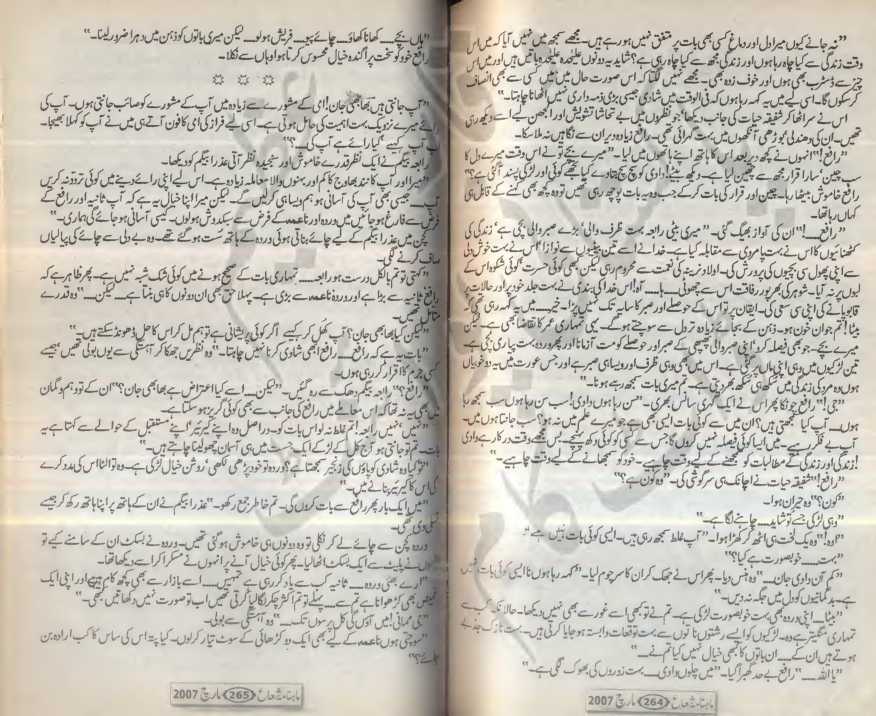 ”نہ جانے کیوں میرا دل اور دماغ کسی بھی بات پر متفق نہیں ہو رہے ہیں۔ مجھے سمجھ میں نہیں آیا کہ میں اس
وقت زندگی سے کیا چاہ رہا ہوں اور زندگی مجھ سے کیا چاہ رہی ہے؟ شاید یہ دونوں علیحدہ علیحدہ باتیں ہیں اور میں اس
چیز سے ڈسٹرب بھی ہوں اور خوف زدہ بھی۔ مجھے نہیں لگتا کہ اس صورت حال میں میں کسی سے بھی انصاف
کر سکوں گا۔ اسی لیے میں یہ کہہ رہا ہوں کہ فی الوقت میں شادی جیسی بڑی ذمہ داری نہیں اٹھانا چاہتا۔“
اس نے سر اٹھا کر شفیقہ حیات کی جانب دیکھا جو نظروں میں بے تحاشا تشویش اور الجھن لیے اسے دیکھ رہی
تھیں۔ ان کی دھندلی بوڑھی آنکھوں میں بہت گہرائی تھی۔ رافع زیادہ دیر ان سے نگاہیں نہ ملا سکا۔
”رافع!“ انہوں نے کچھ دیر بعد اس کا ہاتھ اپنے ہاتھوں میں لیا۔ ”میرے بچے تو نے اس وقت میرے دل کا
سب چین سارا قرار مجھ سے چھین لیا ہے۔ دیکھ بیٹے! دادی کو سچ سچ بتا دے کیا تجھے کوئی اور لڑکی پسند آگئی ہے؟“
رافع خاموش بیٹھا رہا۔ چین اور قرار کی بات کر کے جب وہ یہ بات پوچھ رہی تھیں تو وہ کچھ بھی کہنے کے قابل ہی
کہاں رہا تھا۔
”رافع...!“ ان کی آواز بھیگ گئی۔ ”میری بیٹی رابعہ بہت ظرف والی، بڑے صبر والی بچی ہے، زندگی کی
کٹھنائیوں کا اس نے بہت پامردی سے مقابلہ کیا ہے۔ خدا نے اسے تین بیٹیوں سے نوازا، اس نے بہت خوش دلی
سے اپنی پھول سی بچیوں کی پرورش کی۔ اولاد نرینہ کی نعمت سے محروم رہی لیکن کبھی کوئی حسرت کوئی شکوہ اس کے
لبوں پر نہ آیا۔ شوہر کی بھرپور رفاقت اس سے چھوٹی... آہ! اس خدا کی بندی نے بہت جلد خود پر اور حالات پر
قابو پانے کی اپنی سی سعی کی۔ ایقان پر تو اس کے حوصلے اور صبر کا سایہ تک نہیں پڑا۔ خیر... میں یہ کہہ رہی تھی
بیٹا! تم جوان خون ہو۔ ذہن کے بجائے زیادہ تر دل سے سوچتے ہو گے۔ یہی تمہاری عمر کا تقاضا بھی ہے۔ لیکن
میرے بچے۔ جو بھی فیصلہ کرو اپنی صبر والی پھپھی کے صبر اور حوصلے کو مت آزمانا اور پھر وردہ بہت پیاری بچی ہے
تین لڑکیوں میں وہی اپنی ماں پر گئی ہے۔ اس میں بھی وہی ظرف اور ویسا ہی صبر ہے اور جس عورت میں یہ دو خوبیاں
ہوں وہ مرد کی زندگی میں سکھ ہی سکھ بھر دیتی ہے۔ تم میری بات سمجھ رہے ہو نا۔“
”جی!“ رافع چونکا پھر اس نے ایک گہری سانس بھری۔ ”سن رہا ہوں دادی! سب سن رہا ہوں سب سمجھ رہا
ہوں۔ آپ کیا سمجھتی ہیں؟ ان میں سے کوئی بات ایسی بھی ہے جو میرے علم میں نہ ہو؟ سب جانتا ہوں میں۔
آپ بے فکر رہیے۔ میں ایسا کوئی فیصلہ نہیں کروں گا جس سے کسی کو کوئی دکھ پہنچے۔ بس مجھے وقت درکار ہے دادی
! زندگی اور زندگی کے مطالبات کو سمجھنے کے لیے وقت چاہیے۔ خود کو سمجھانے کے لیے وقت چاہیے۔“
”رافع!“ شفیقہ حیات نے اچانک ہی سرگوشی کی۔ ”وہ کون ہے؟“
”کون؟“ وہ حیران ہوا۔
”وہی لڑکی جسے تو شاید... چاہنے لگا ہے۔“
”اوہ!“ وہ یک لخت ہی اٹھ کر کھڑا ہوا۔ ”آپ غلط سمجھ رہی ہیں۔ ایسی کوئی بات نہیں ہے۔“
”بہت... خوبصورت ہے کیا؟“
”کم آن دادی جان...“ وہ ہنس دیا۔ پھر اس نے جھک کر ان کا سر چوم لیا۔ ”کہہ رہا ہوں نا ایسی کوئی بات نہیں
ہے۔ بدگمانیوں کو دل میں جگہ نہ دیں۔“
”بیٹا... اپنی وردہ بھی بہت خوبصورت لڑکی ہے۔ تم نے تو کبھی اسے غور سے بھی نہیں دیکھا۔ حالانکہ کب سے
تمہاری منگیتر ہے وہ۔ لڑکیوں کو ایسے رشتوں ناتوں سے بہت توقعات وابستہ ہو جایا کرتی ہیں۔ بہت نازک جذبے
ہوتے ہیں ان کے... ان باتوں کا کبھی خیال نہیں کیا تم نے...“
”یا اللہ...“ رافع بے حد گھبرا گیا۔ ”میں چلوں دادی... بہت زوروں کی بھوک لگی ہے۔“
ماہنامہ شعاع 264 مارچ 2007
”ہاں بچے... کھانا کھاؤ... چائے پیو... فریش ہو لو... لیکن میری باتوں کو ذہن میں دہرا ضرور لینا۔“
رافع خود کو سخت پراگندہ خیال محسوس کرتا ہوا وہاں سے نکلا۔
☼ ☼ ☼
”آپ جانتی ہیں بھابھی جان! امی کے مشورے سے زیادہ میں آپ کے مشورے کو صائب جانتی ہوں۔ آپ کی
رائے میرے نزدیک بہت اہمیت کی حامل ہوتی ہے۔ اسی لیے فراز کی امی کا فون آتے ہی میں نے آپ کو کہلا بھیجا۔
اب آپ کہیے کیا رائے ہے آپ کی۔؟“
رابعہ بیگم نے ایک نظر قدرے خاموش اور سنجیدہ نظر آتی عذرا بیگم کو دیکھا۔
”میرا اور آپ کا نند بھاوج کا کم اور بہنوں والا معاملہ زیادہ ہے۔ اس لیے اپنی رائے دینے میں کوئی تردد نہ کریں
آپ... جیسی بھی آپ کی آسانی ہو ہم ویسا ہی کر لیں گے۔ لیکن میرا اپنا خیال یہ ہے کہ آپ ثانیہ اور رافع کے
فرض سے فارغ ہو جائیں میں وردہ اور ناعمہ کے فرض سے سبکدوش ہو لوں۔ کیسی آسانی ہو جائے گی ہماری۔“
کچن میں عذرا بیگم کے لیے چائے بناتی ہوئی وردہ کے ہاتھ سست ہو گئے تھے۔ وہ بے دلی سے چائے کی پیالیاں
صاف کرنے لگی۔
”کہتی تو تم بالکل درست ہو رابعہ... تمہاری بات کے صحیح ہونے میں کوئی شک شبہ نہیں ہے۔ پھر ظاہر ہے کہ
رافع ثانیہ سے بڑا ہے اور وردہ ناعمہ سے بڑی ہے۔ پہلا حق بھی ان دونوں کا ہی بنتا ہے... لیکن...“ وہ قدرے
متامل تھیں۔
”لیکن کیا بھابھی جان؟ آپ کھل کر کہیے اگر کوئی پریشانی ہے تو ہم مل کر اس کا حل ڈھونڈ سکتے ہیں۔“
”بات یہ ہے کہ رافع... رافع ابھی شادی کرنا نہیں چاہتا۔“ وہ نظریں جھکا کر آہستگی سے یوں بولی تھیں جیسے
کسی جرم کا اقرار کر رہی ہوں۔
”رافع؟“ رابعہ بیگم دھک سے رہ گئیں۔ ”لیکن... اسے کیا اعتراض ہے بھابھی جان؟“ ان کے تو وہم و گمان
میں بھی یہ نہ تھا کہ اس معاملے میں رافع کی جانب سے بھی کوئی گریز ہو سکتا ہے۔
”نہیں، نہیں رابعہ! تم غلط نہ لو اس بات کو۔ دراصل وہ اپنے کیریئر، اپنے مستقبل کے حوالے سے کہتا ہے یہ
بات۔ تم تو جانتی ہو آج کل کے لڑکے ایک جست میں ہی آسمان چھو لینا چاہتے ہیں۔“
”تو کیا وہ شادی کو پاؤں کی زنجیر سمجھتا ہے؟ وردہ تو خود پڑھی لکھی، روشن خیال لڑکی ہے۔ وہ تو الٹا اس کی مدد کرے
گی اس کا کیریئر بنانے میں۔“
”میں ایک بار پھر رافع سے بات کروں گی۔ تم خاطر جمع رکھو۔“ عذرا بیگم نے ان کے ہاتھ پر اپنا ہاتھ رکھ کر جیسے
تسلی دی تھی۔
وردہ کچن سے چائے لے کر نکلی تو وہ دونوں ہی خاموش ہو گئی تھیں۔ وردہ نے بسکٹ ان کے سامنے کیے تو
انہوں نے پلیٹ سے ایک بسکٹ اٹھا لیا۔ پھر کوئی خیال آنے پر انہوں نے مسکرا کر اسے دیکھا تھا۔
”ارے بھئی وردہ... ثانیہ کب سے یاد کر رہی ہے تمہیں... اسے بازار سے بھی کچھ کام ہے اور اپنی ایک
قمیض بھی کڑھوانا ہے تم سے... پہلے تو تم اکثر چکر لگا لیا کرتی تھیں اب تو صورت نہیں دکھاتیں بھی۔“
”جی ممانی! میں آؤں گی کل پرسوں تک...“ وہ آہستگی سے بولی۔
”سوچتی ہوں ناعمہ کے لیے بھی ایک دو کڑھائی کے سوٹ تیار کر لوں۔ کیا پتا اس کی ساس کا کب ارادہ بن
جائے؟“
ماہنامہ شعاع 265 مارچ 2007